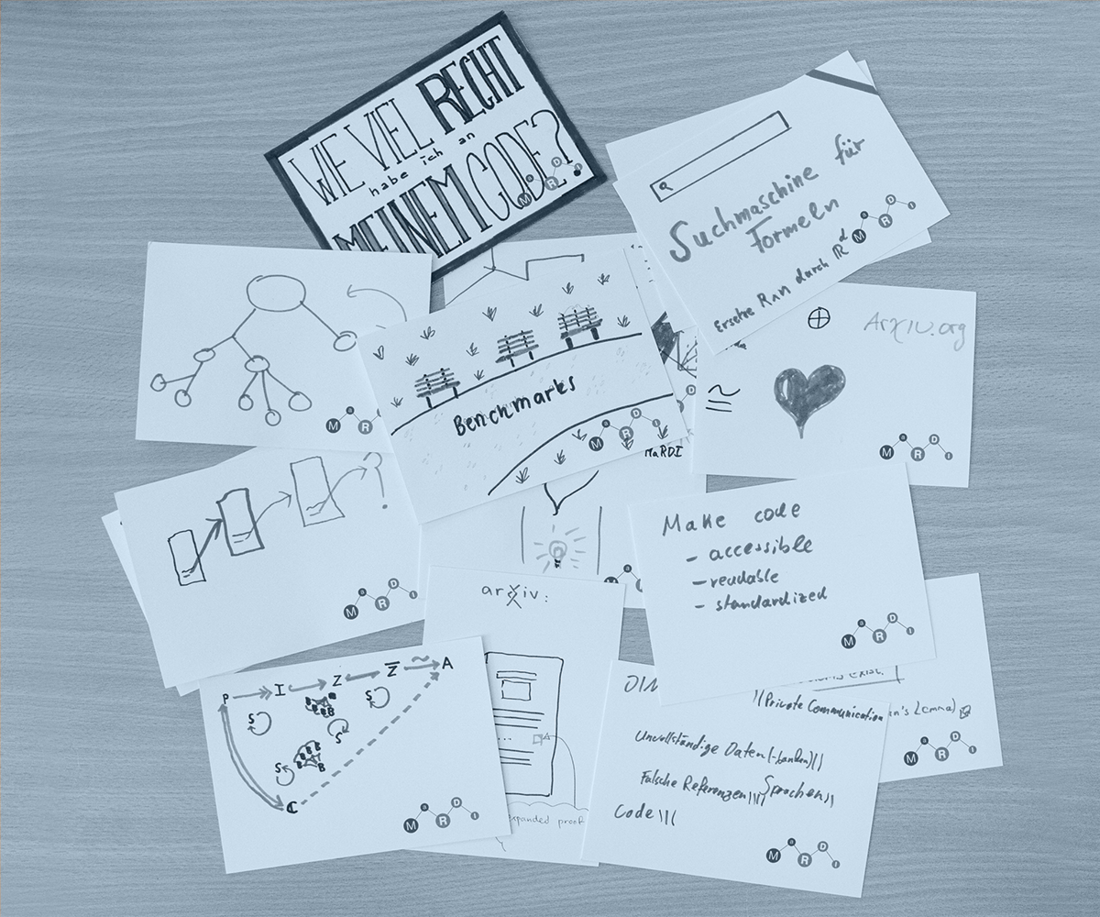 WIE VIEL RECHT
habe ich an
MEINEM CODE?
MaRDI
Suchmaschine für
Formeln
Ersetze R^n durch ℝ^d
MaRDI
ArXIV.org
⊕
≅
MaRDI
MaR
Benchmarks
MaRDI
MaRDI
MaRDI
Make code
- accessible
- readable
- standardized
MaRDI
arXiv:
expanded proof
P I Z Z̅ ~ A
S S S S
B B B
C
MaRDI
||Private Communication
Unvollständige Daten(-banken)||
Falsche Referenzen||| Sprachen||
Code |||
MaRDI
exist.
n's Lemma)
MaRDI